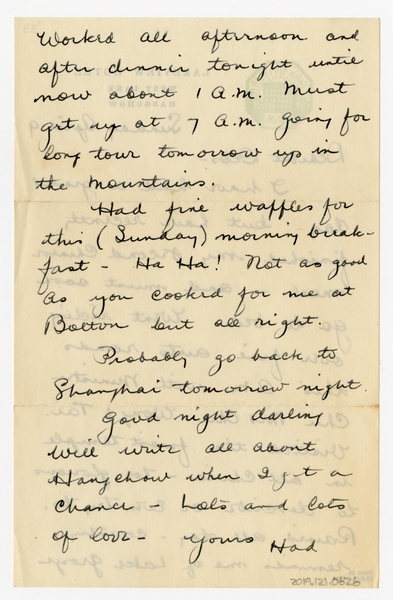 Worked all afternoon and
after dinner tonight until
now about 1 A.M. Must
get up at 7 A.M. going for
long tour tomorrow up in
the mountains.
Had fine waffles for
this (Sunday) morning break-
fast - Ha Ha! Not as good
as you cooked for me at
Bolton but all right.
Probably go back to
Shanghai tomorrow night.
Good night darling
Will write all about
Hangchow when I get a
chance - Lots and lots
of love - Yours Had
2019.121.0526